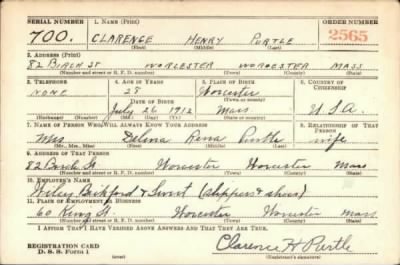 SERIAL NUMBER 1. NAME (Print) ORDER NUMBER
700. CLARENCE HENRY PURTLE 2565
(First) (Middle) (Last)
2. ADDRESS (Print)
82 BIRCH ST WORCESTER WORCESTER MASS
(Number and street or R. F. D. number) (Town) (County) (State)
3. TELEPHONE 4. AGE IN YEARS 5. PLACE OF BIRTH 6. COUNTRY OF CITIZENSHIP
NONE 28 Worcester
(Town or county)
DATE OF BIRTH
July 26 1912 Mass U.S.A.
(Exchange) (Number) (Mo.) (Day) (Yr.) (State or country)
7. NAME OF PERSON WHO WILL ALWAYS KNOW YOUR ADDRESS 8. RELATIONSHIP OF THAT PERSON
Mrs Delma Purtle wife
(Mr., Mrs., Miss) (First) (Middle) (Last)
9. ADDRESS OF THAT PERSON
82 Birch St. Worcester Worcester Mass
(Number and street or R. F. D. number) (Town) (County) (State)
10. EMPLOYER'S NAME
Bickford & Sweet (slippers & shoes)
11. PLACE OF EMPLOYMENT OR BUSINESS
60 King St Worcester Worcester Mass
(Number and street or R. F. D. number) (Town) (County) (State)
I AFFIRM THAT I HAVE VERIFIED ABOVE ANSWERS AND THAT THEY ARE TRUE.
REGISTRATION CARD Clarence H Purtle
D. S. S. Form 1 (over) (Registrant's signature)